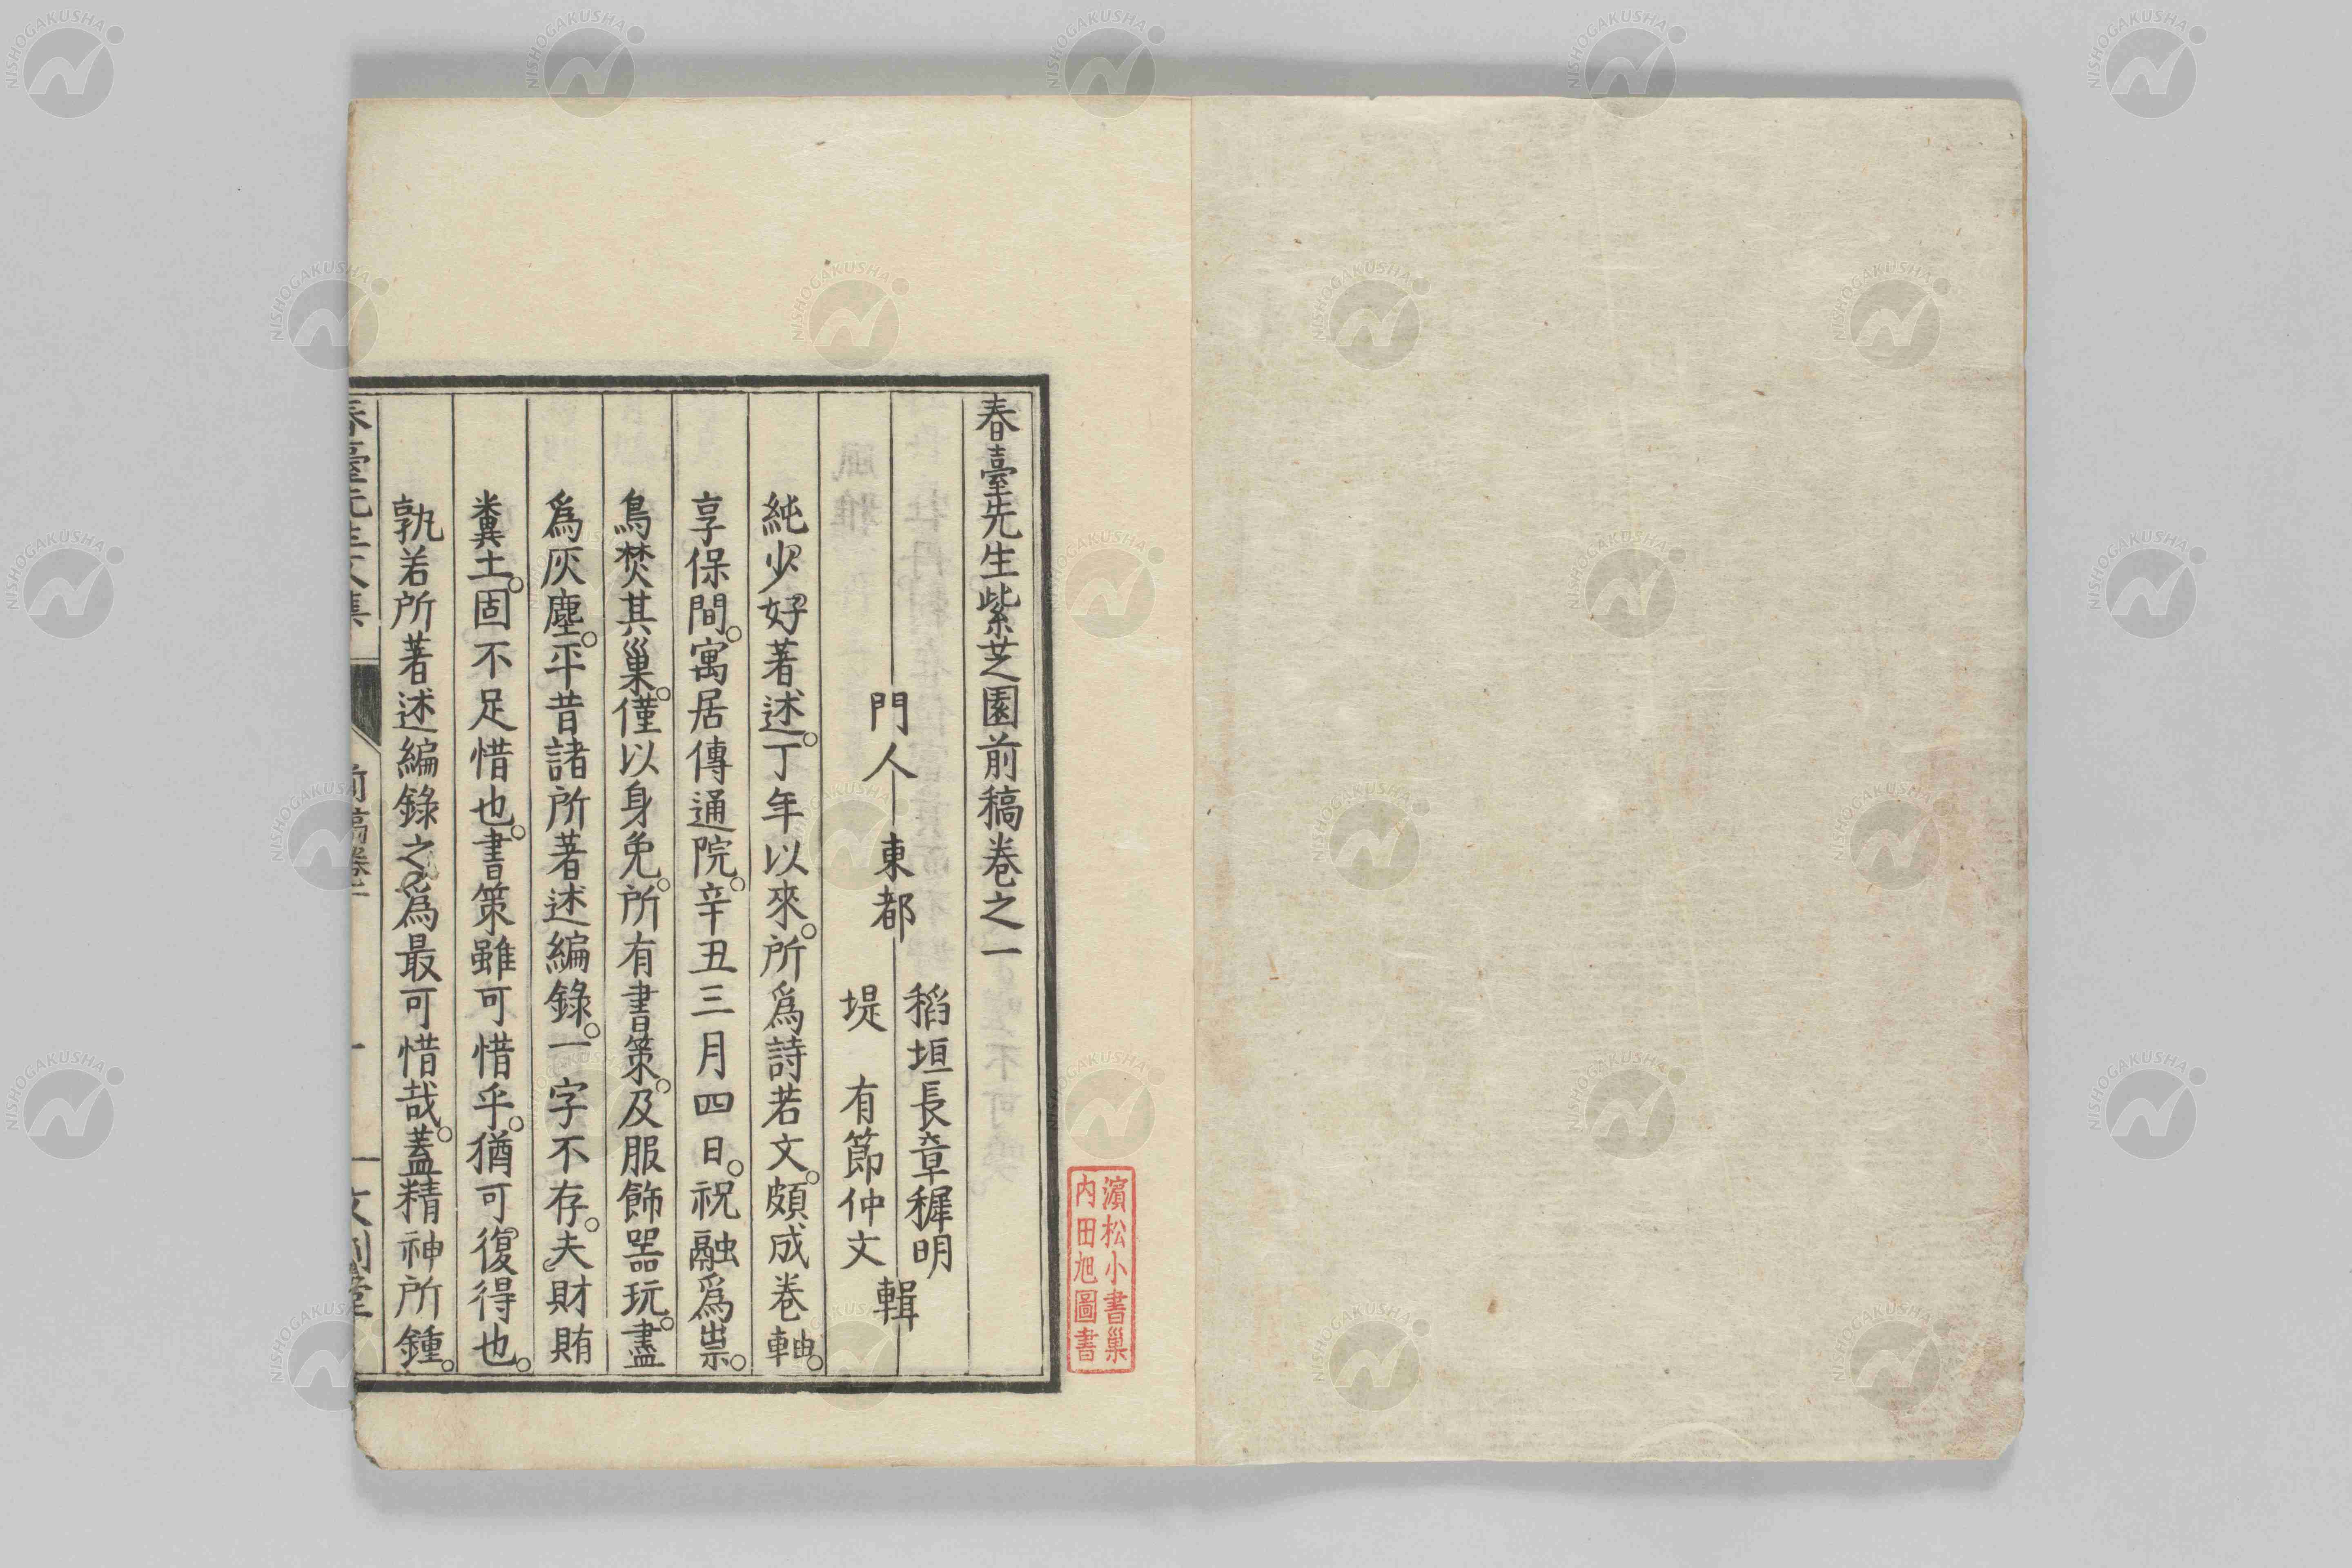 春臺先生紫芝園前稿卷之一
門人 東都 稻垣長章穉明
堤 有節仲文 輯
純少好著述。丁年以來。所爲詩若文。頗成卷軸。
享保間。寓居傳通院。辛丑三月四日。祝融爲祟。
鳥焚其巢。僅以身免。所有書策。及服飾器玩。盡
爲灰塵。平昔諸所著述編錄。一字不存。夫財賄
糞土。固不足惜也。書策雖可惜乎。猶可復得也。
孰若所著述編錄之爲最可惜哉。蓋精神所鍾。
春臺先生文集 前稿卷一 一
濵松小書巢
内田旭圖書
NISHOGAKUSHA